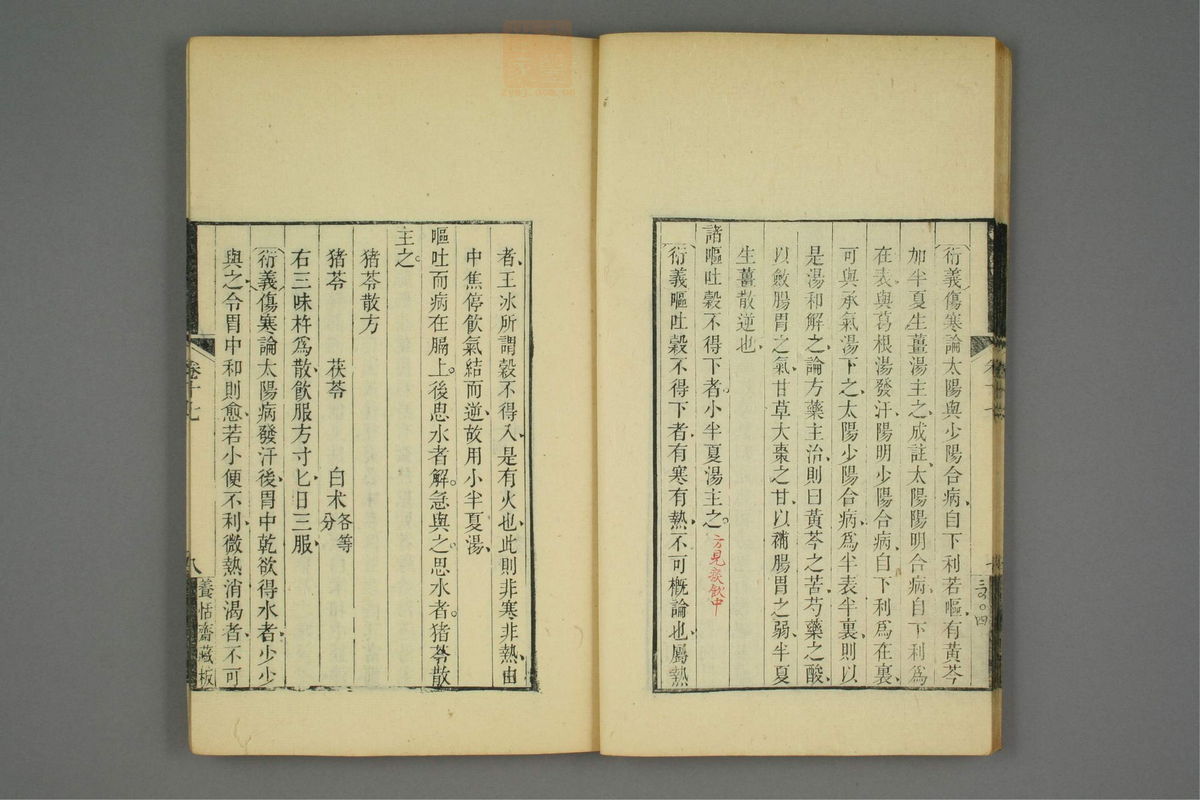 衍義傷寒論太陽與少陽合病自下利若嘔有黃芩
加半夏生薑湯主之成註太陽陽明合病自下利爲
在表與葛根湯發汗陽明少陽合病自下利爲在裏
可與承氣湯下之太陽少陽合病爲半表半裏則以
是湯和解之論方藥主治則曰黃芩之苦芍藥之酸
以斂腸胃之氣甘草大棗之甘以補腸胃之弱半夏
生薑散逆也
諸嘔吐穀不得下者小半夏湯主之。方見痰飮中
衍義嘔吐穀不得下者有寒有熱不可概論也屬熱
者王冰所謂穀不得入是有火也此則非寒非熱由
中焦停飮氣結而逆故用小半夏湯
嘔吐而病在膈上。後思水者解。急與之。思水者。猪苓散
主之。
猪苓散方
猪苓 茯苓 白朮各等分
右三味杵爲散飮服方寸匕日三服
衍義傷寒論太陽病發汗後胃中乾欲得水者少少
與之令胃中和則愈若小便不利微熱消渴者不可
卷十七
八
養恬齋藏板